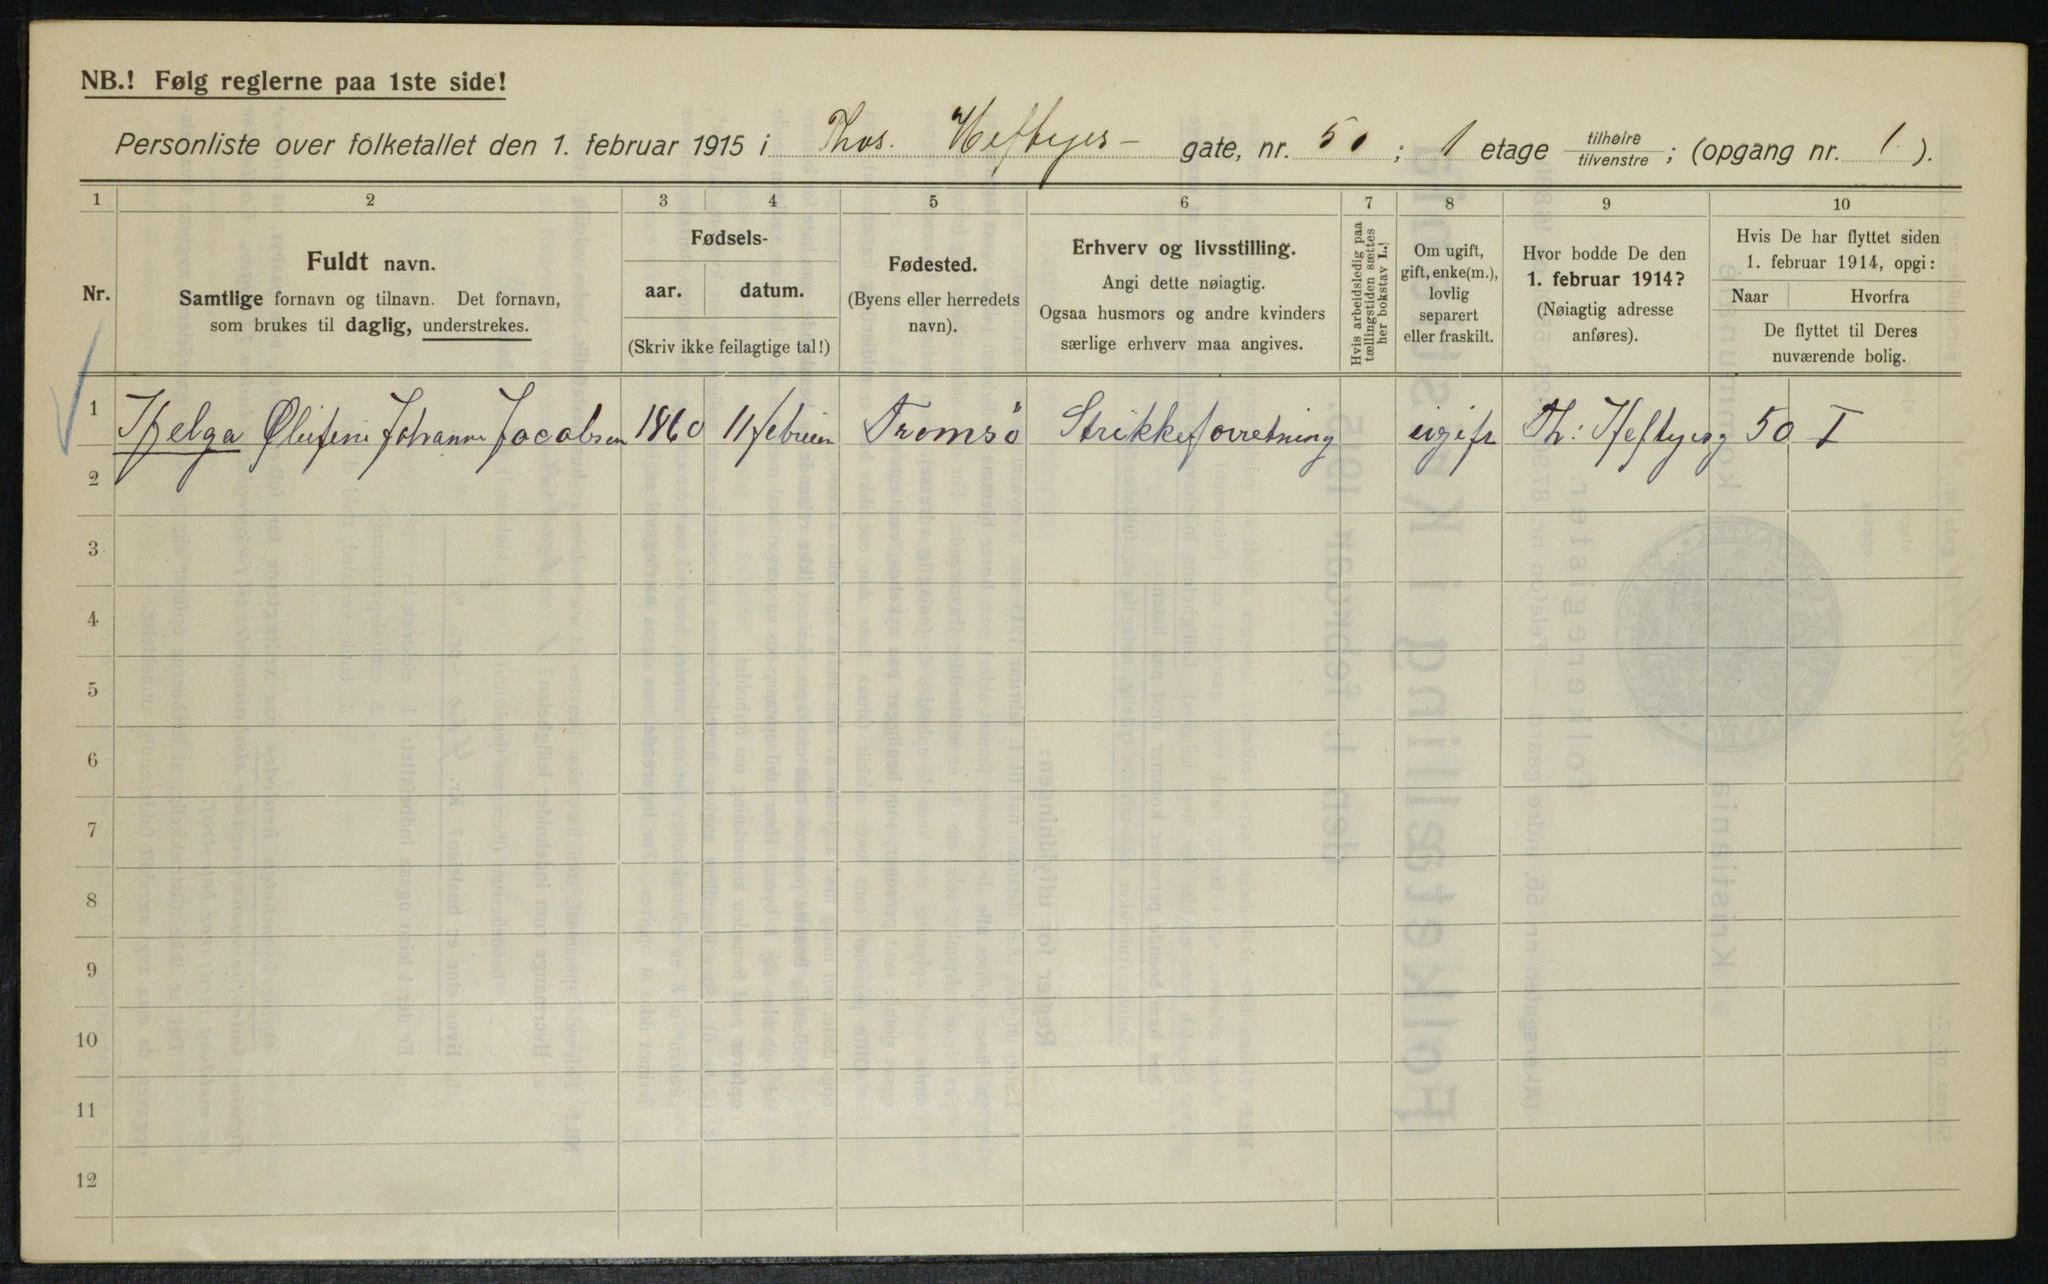 NB.! Følg reglerne paa 1ste side!
Personliste over folketallet den 1. februar 1915 i Thos. Heftyes - gate, nr. 50; 1 etage tilhøire tilvenstre; (opgang nr. 1).
1 2 3 4 5 6 7 8 9 10
Nr.
Fuldt navn.
Samtlige fornavn og tilnavn. Det fornavn,
som brukes til daglig, understrekes.
Fødsels-
aar. datum.
(Skriv ikke feilagtige tal!)
Fødested.
(Byens eller herredets
navn).
Erhverv og livsstilling.
Angi dette nøiagtig.
Ogsaa husmors og andre kvinders
særlige erhverv maa angives.
Hvis arbeidsledig paa
tællingstiden sættes
her bokstav L.!
Om ugift,
gift, enke(m.),
lovlig
separert
eller fraskilt.
Hvor bodde De den
1. februar 1914?
(Nøiagtig adresse
anføres).
Hvis De har flyttet siden
1. februar 1914, opgi:
Naar Hvorfra
De flyttet til Deres
nuværende bolig.
1 Helga Johanne Jacobsen 1860 11 Tromsø Strikkeforretning ugift Th: Heftyesg 50 I
2
3
4
5
6
7
8
9
10
11
12